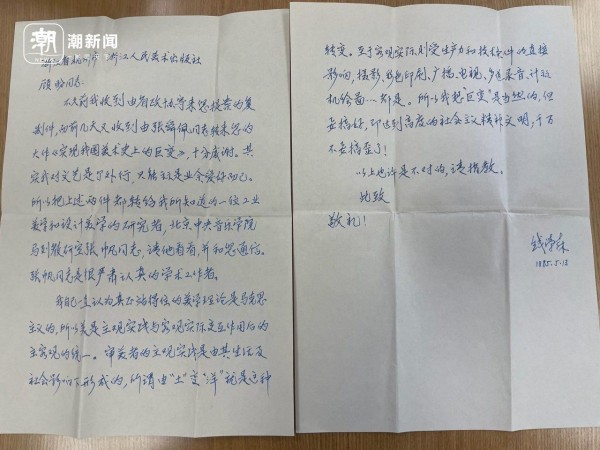 潮 潮新闻
浙江省杭州市 浙江人民美术出版社
同志:
不久前我收到由省政协寄来您提案的复
制件,而前几天又收到由张佩同志转来您的
大作《实现我国美术史上的巨变》,十分感谢。其
实我对文艺是门外汉,只能称是业余爱好而已。
所以把上述两件都转给我所知道的一位工业
美学和设计美学的研究者,北京中央音乐学院
马列教研室张帆同志,请他看看,并和您通信。
张帆同志是很严肃认真的学术工作者。
我自己一直认为真正站得住的美学理论是马克思
主义的,所以美是主观实践与客观实际交互作用后的
主客观的统一。审美者的主观实践是由其生活及
社会影响下形成的,所谓由“土”变“洋”就是这种
转变。至于客观实际则受生产力和技术条件的直接
影响,摄影、彩色印刷、广播、电视、多道录音、计算
机绘画……都是。所以我想“巨变”是当然的,但
要搞好,即达到高度的社会主义精神文明,千万
不要搞歪了!
以上也许是不对的,请指教。
此致
敬礼!
钱学森
1985.5.18